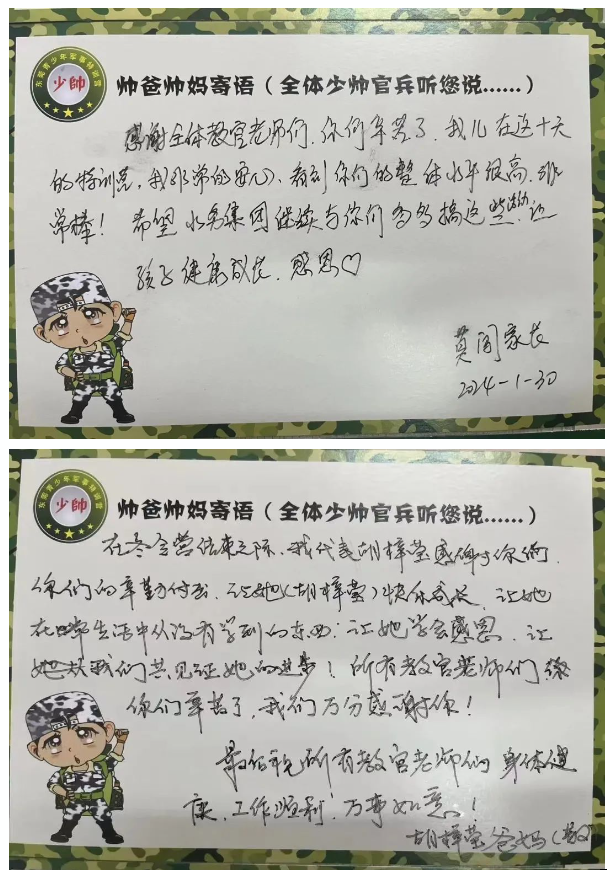 东莞青少年军事特训营
少帥
帅爸帅妈寄语（全体少帅官兵听您说……）
感谢全体教官老师们，你们辛苦了，我儿在这十天
的特训营，我非常的安心、看到你们的整体水平很高，非
常棒！希望水务集团继续与你们多多搞这些活动，让
孩子健康成长，感恩♡
家长
2024-1-30
东莞青少年军事特训营
少帥
帅爸帅妈寄语（全体少帅官兵听您说……）
在冬令营结束之际，我代表胡梓莹感谢你们，
你们的辛勤付出，让她（胡梓莹）快乐成长，让她
在日常生活中从没有学到的东西；让她学会感恩，让
她我们共见证她的进步！所有教官老师们
你们辛苦了，我们万分感谢你！
最后祝所有教官老师们身体健
康，工作顺利！万事如意！
胡梓莹爸妈